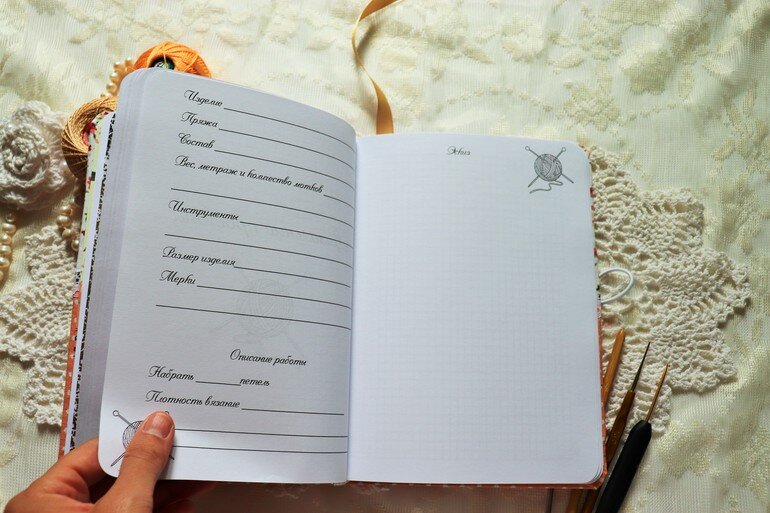 Изделие
Пряжа
Состав
Вес, метраж и колпество мотков
Инструменты
Размер изделия
Мерки
Описание работы
Набрать петель
Плотность вязание
Эскиз